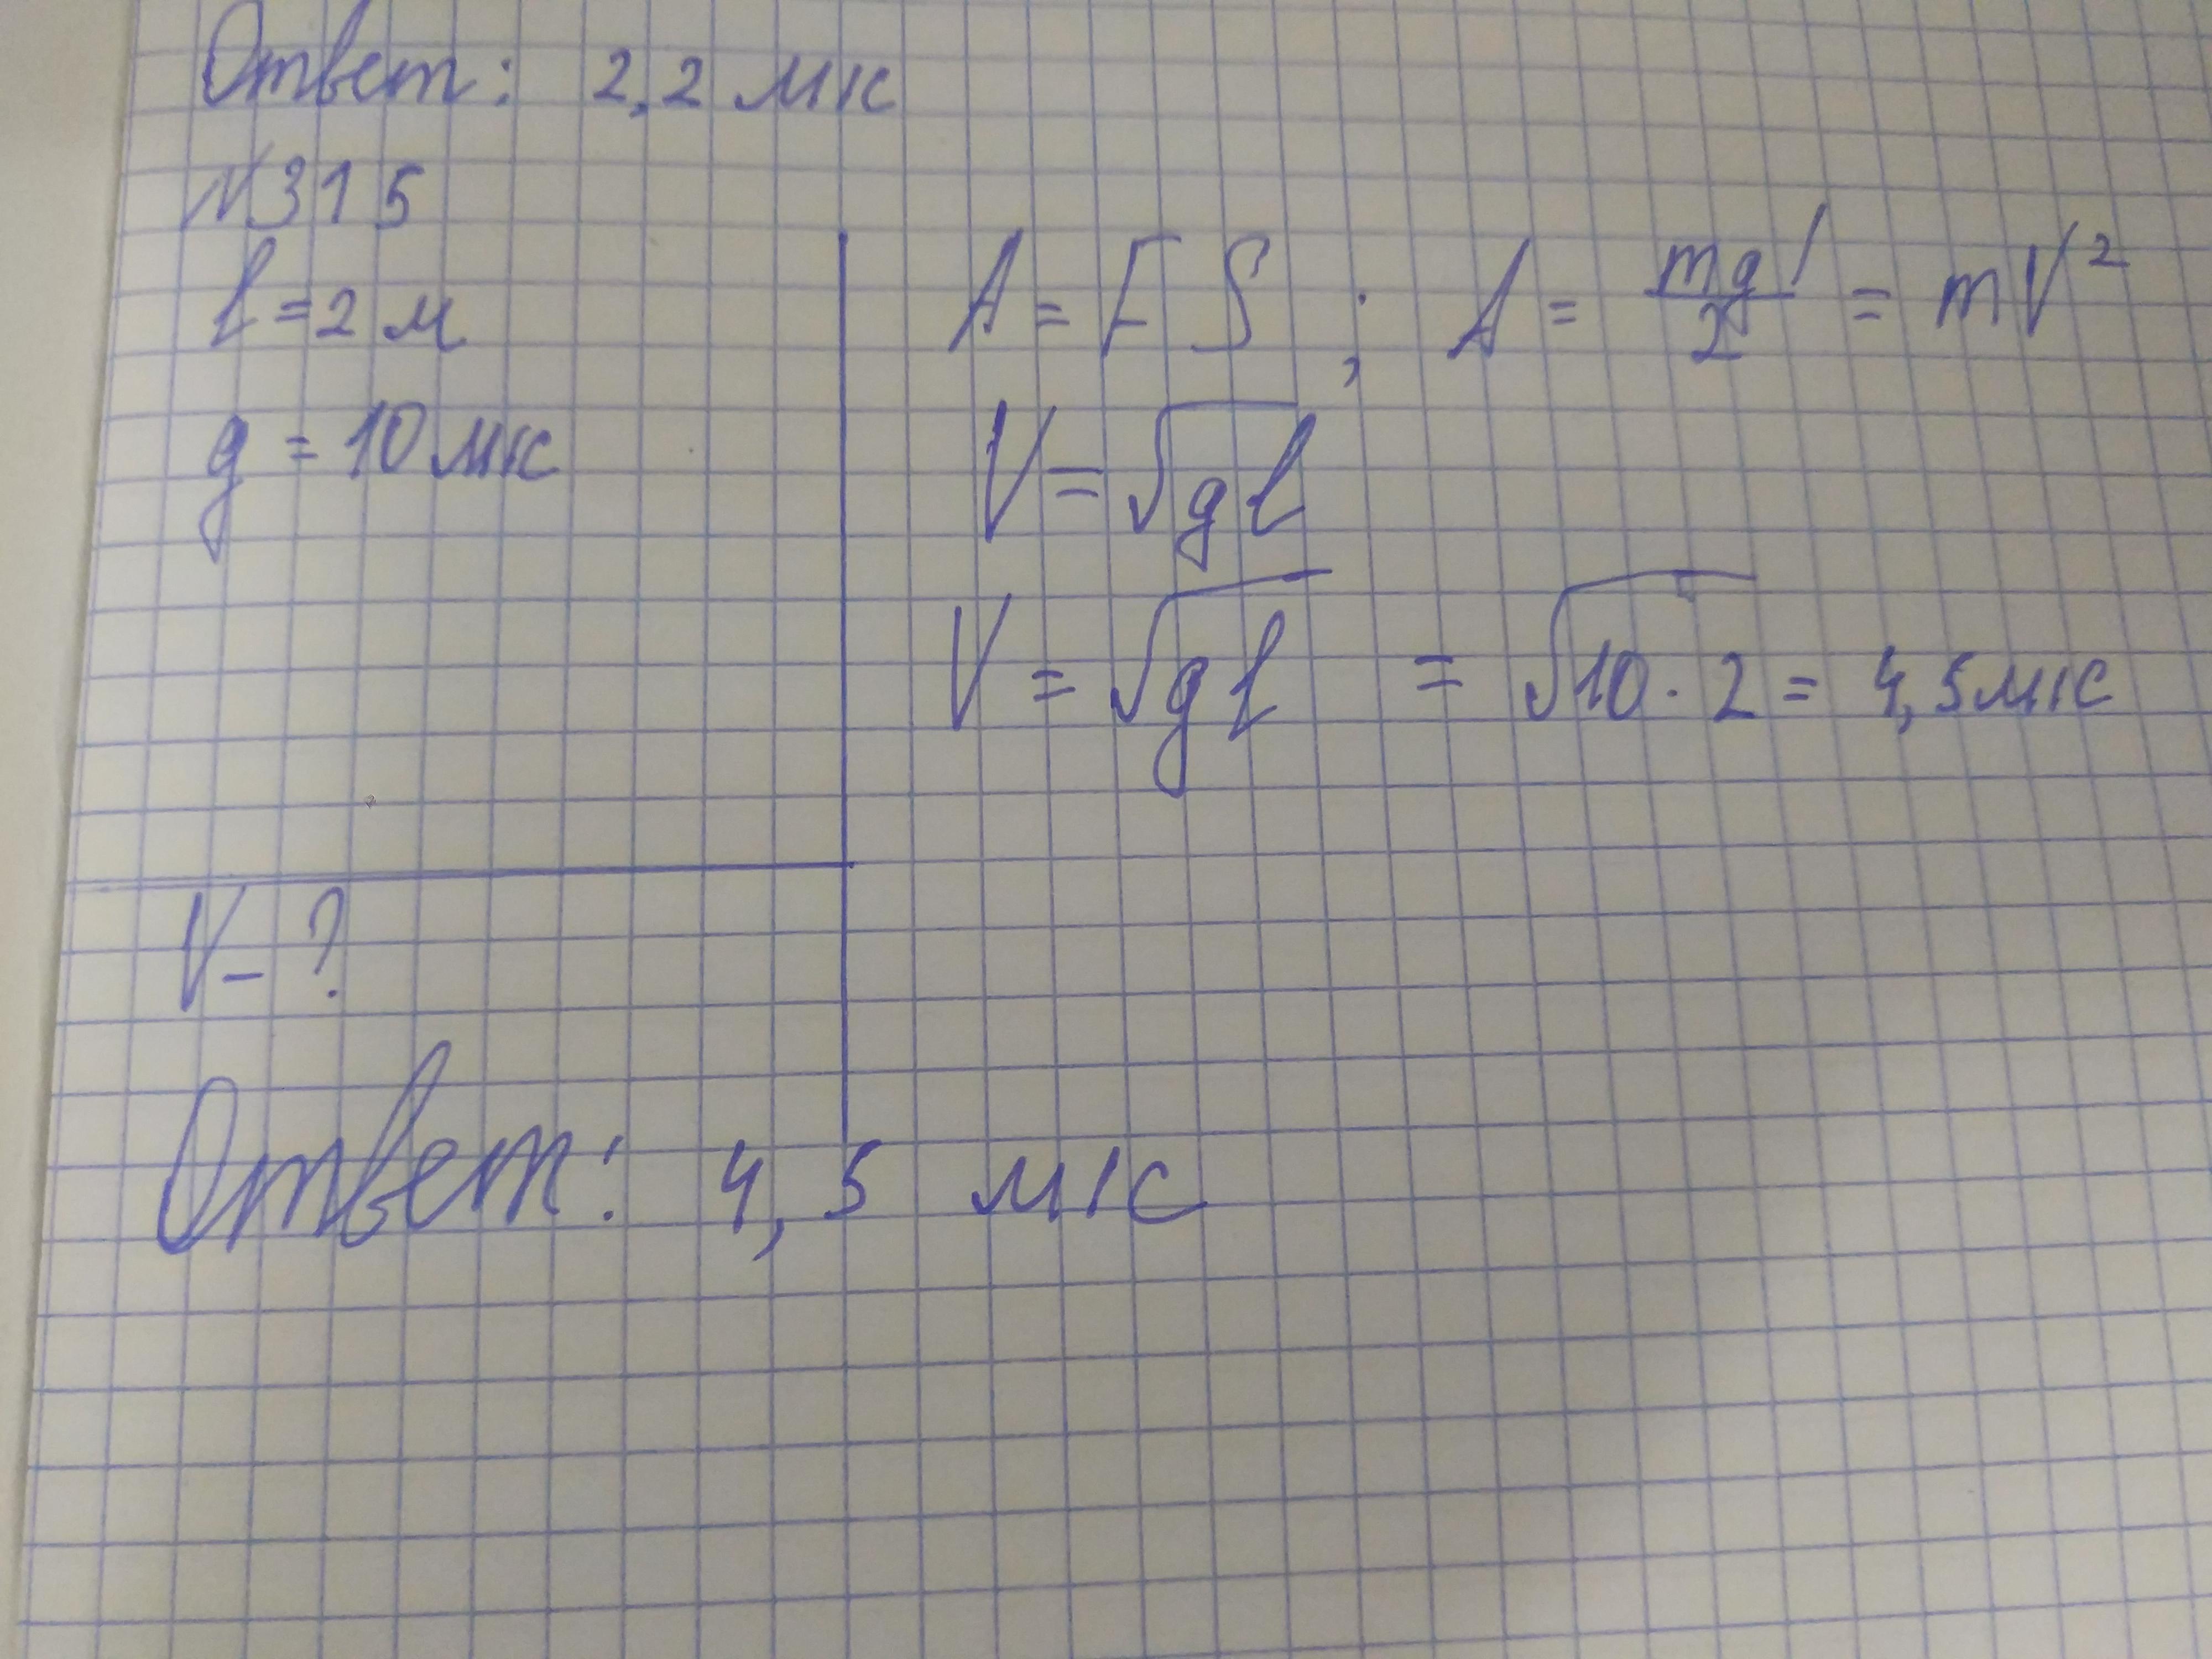 Ответ: 2,2 м/с
№315
l = 2 м
g = 10 м/с
A = F S ; A = mgl/2 = mV²
V = √gl
V = √gl = √10 · 2 = 4,5 м/с
V - ?
Ответ: 4,5 м/с